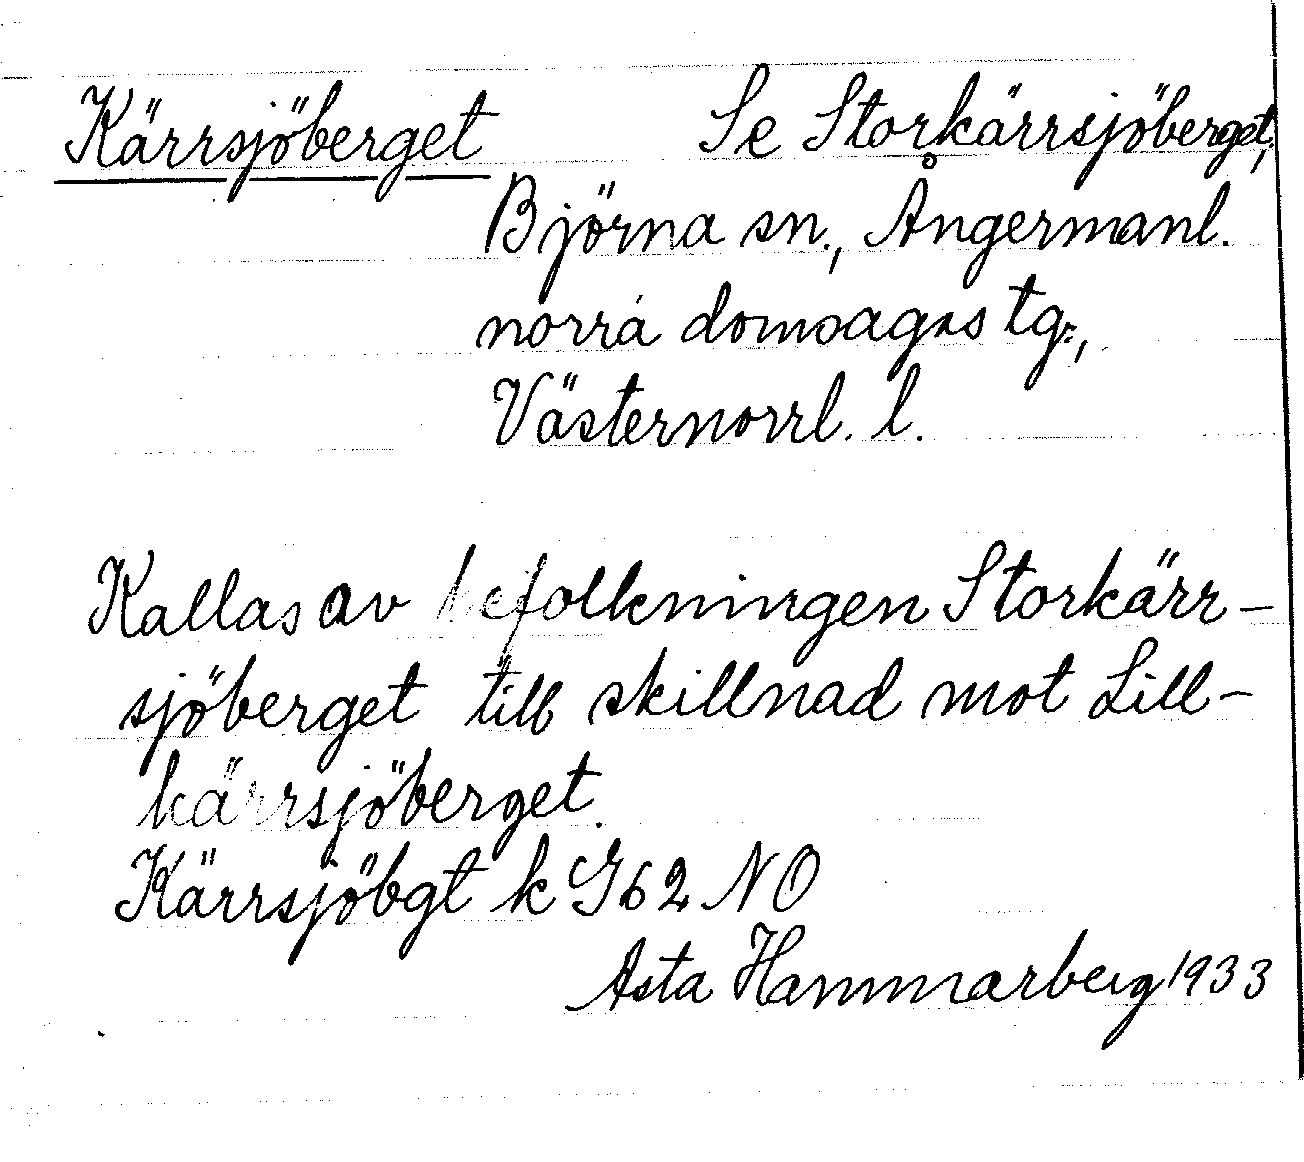 Kärrsjöberget Se Storkärrsjöberget,
Björna sn., Ångermanl.
norra domsagas tg.,
Västernorrl. l.
Kallas av befolkningen Storkärr-
sjöberget till skillnad mot Lill-
kärrsjöberget.
Kärrsjöbgt k G62 NO
Asta Hammarberg 1933